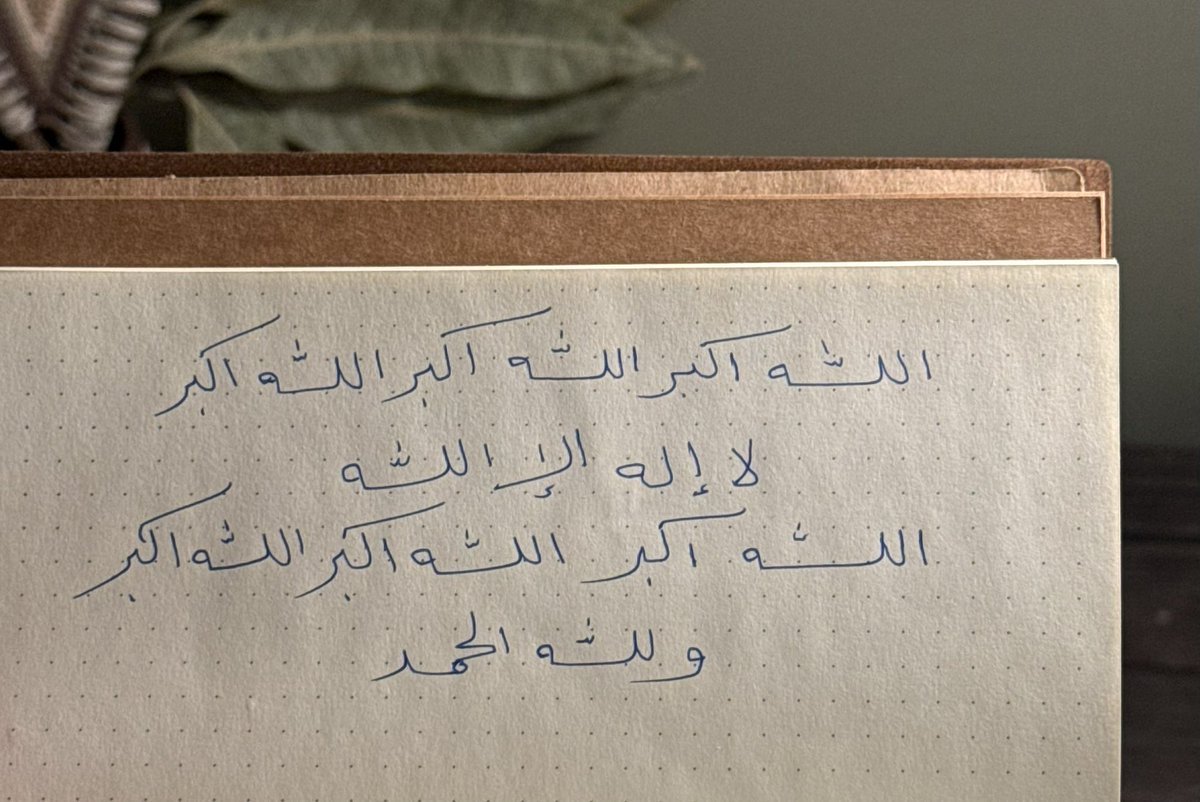 اللّه اكبر اللّه اكبر اللّه اكبر
لا إله الإ اللّه
اللّه اكبر اللّه اكبر اللّه اكبر
و للّه الحمد